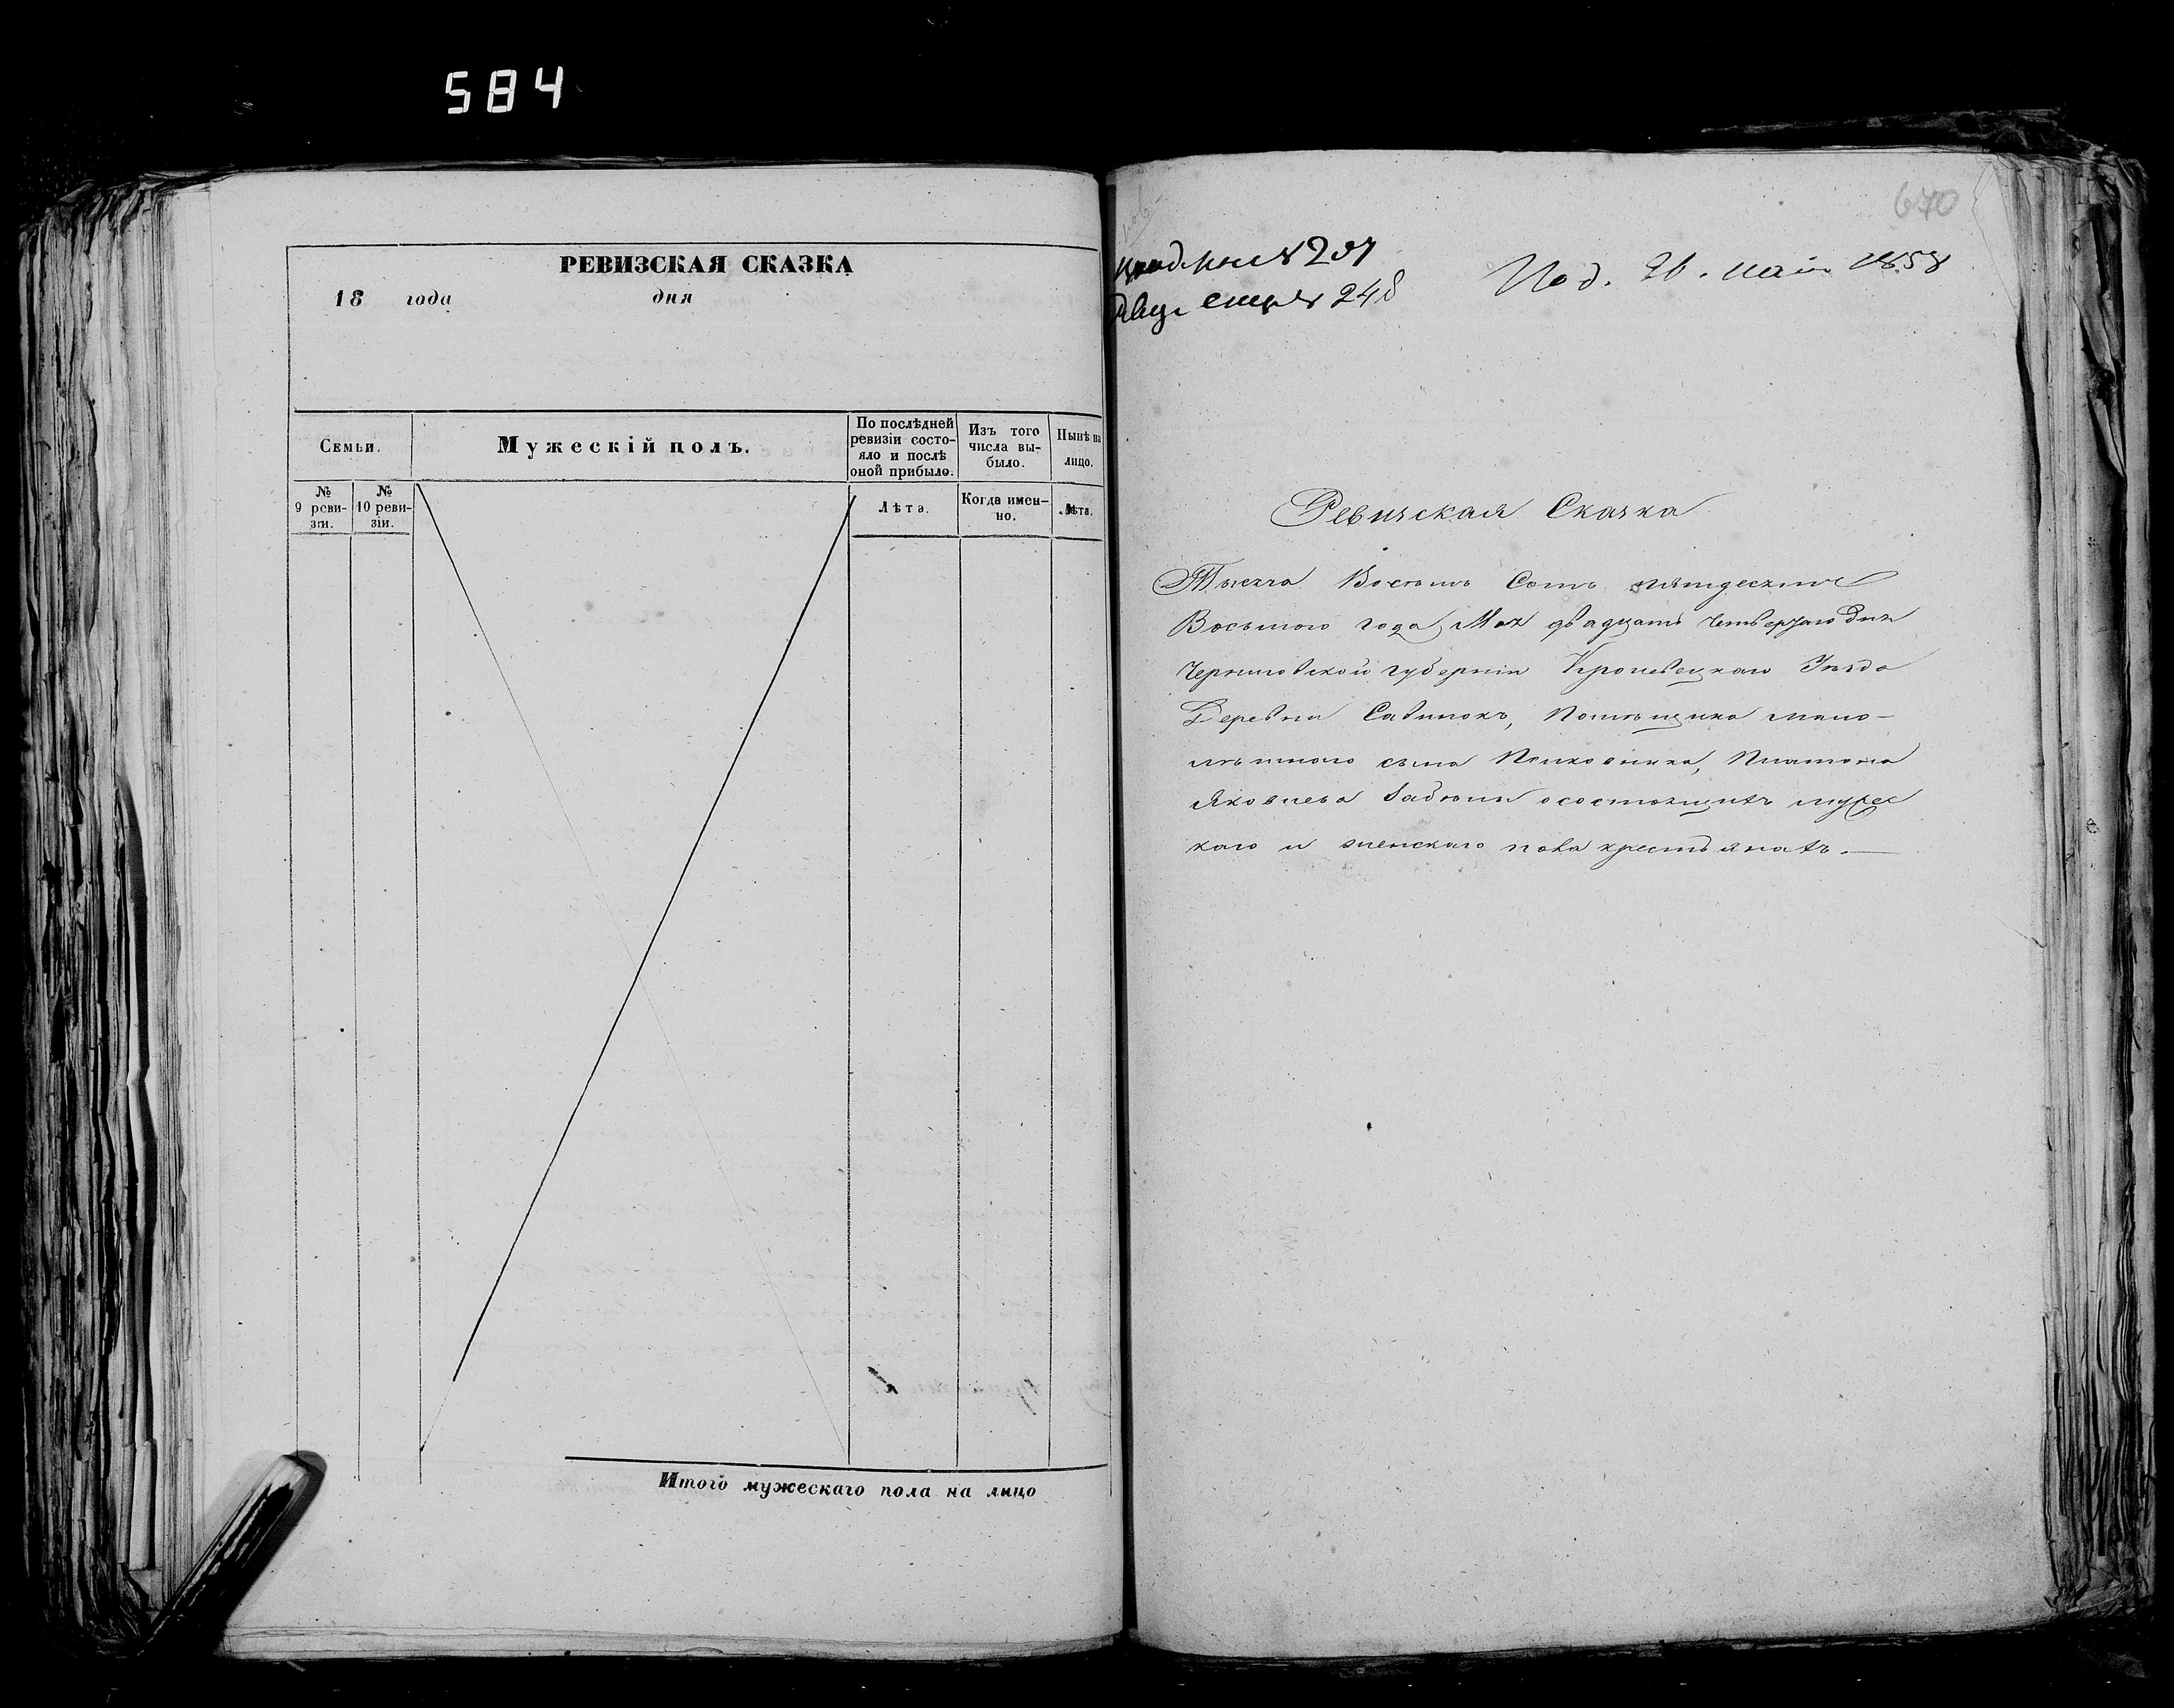 584
РЕВИЗСКАЯ СКАЗКА
18 года дня
Семьи.
Мужескій полъ.
По послѣдней ревизіи состо-
яло и послѣ
оной прибыло.
Изъ того
числа вы-
было.
Нынѣ на
лицо.
№
9 реви-
зіи.
№
10 реви-
зіи.
Лѣта.
Когда имен-
но.
Лѣта.
Итого мужескаго пола на лицо
670
№ 207
№ 248
Под. 26. маія 1858
Ревизская Сказка
Тысяча Восемь Сотъ пятдесятъ
Восьмого года Мая двадцать четвертаго дня
Черниговской губерніи Кролевецкаго Уѣзда
Деревни Савинокъ, Помѣщика мало-
лѣтнаго сына Полковника, Платона
Яковлева Забѣлы о состоящихъ мужес
каго и женскаго пола крестьянахъ.—